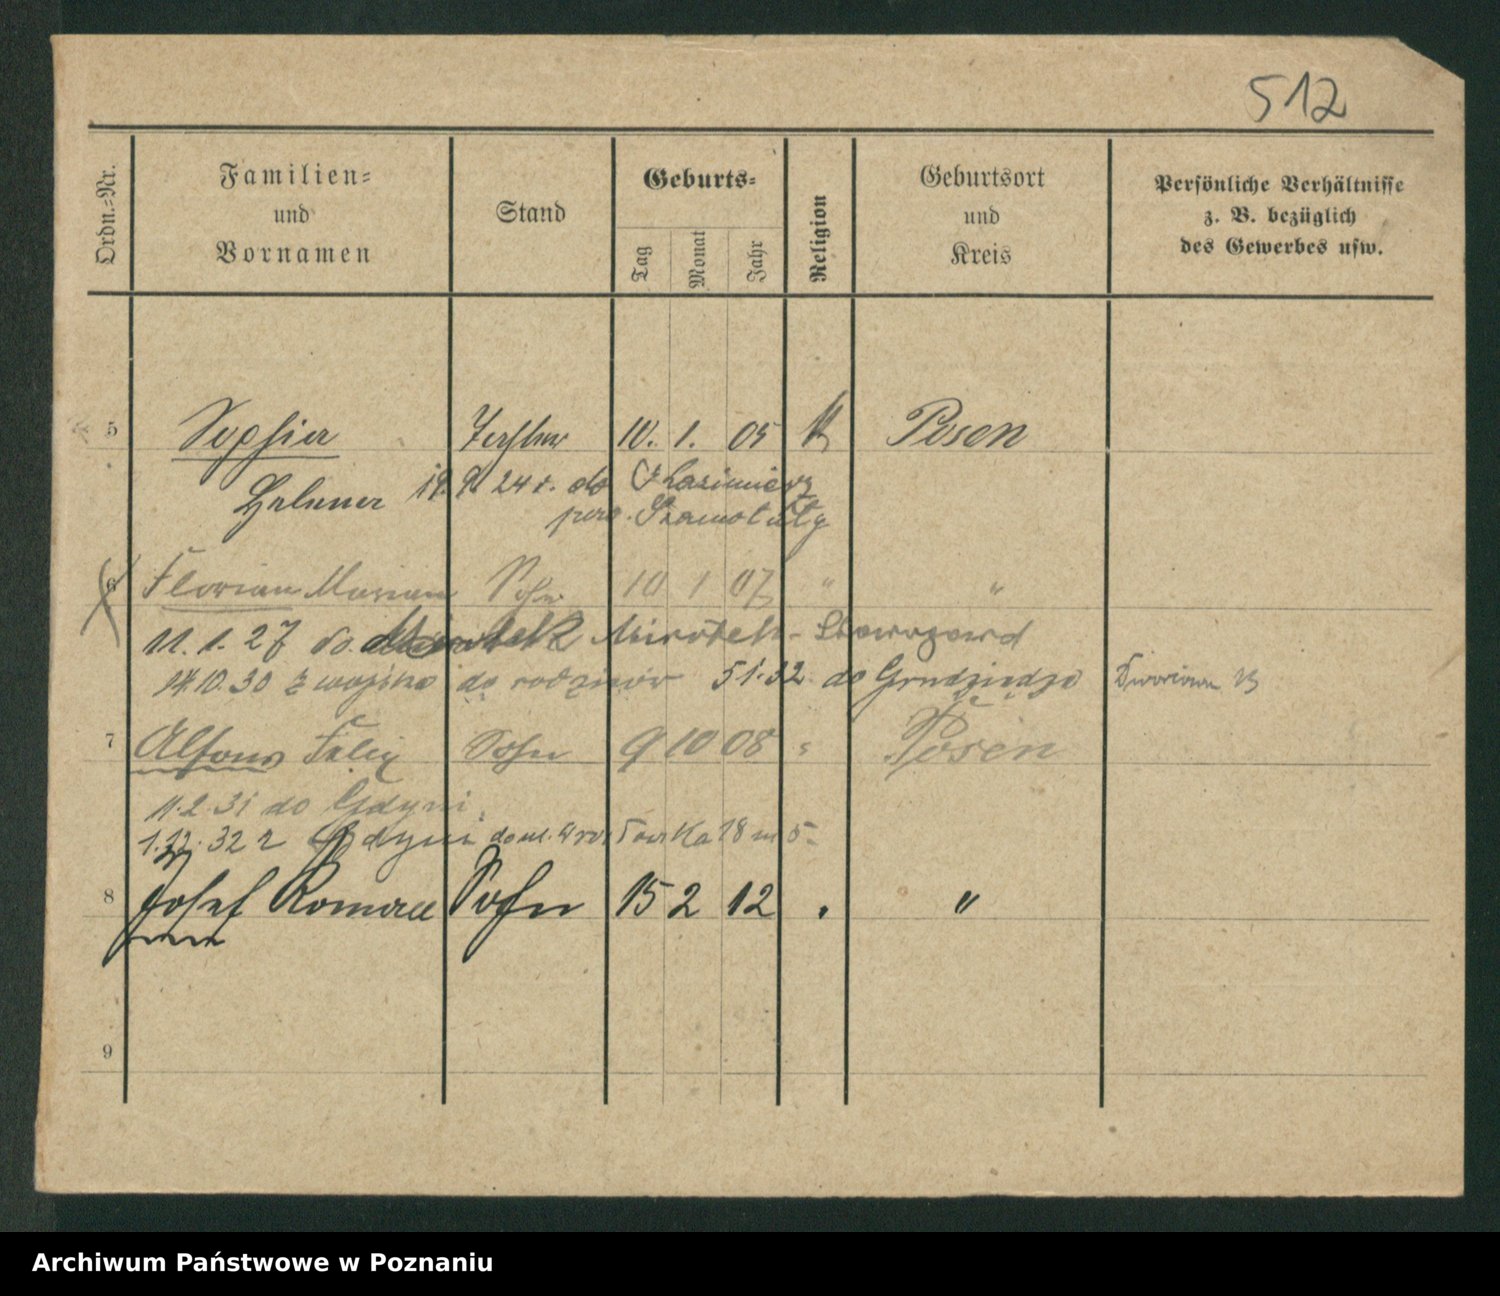 512
Ordn.=Nr.
Familien=
und
Vornamen
Stand
Geburts=
Tag
Monat
Jahr
Religion
Geburtsort
und
Kreis
Persönliche Verhältnisse
z. B. bezüglich
des Gewerbes usw.
5 Sophia Tochter 10. 1. 05 k Posen
Helena 19. 9. 24 r. do Kazimierz
pow. Szamotuły
6 Florian Marian Sohn 10 1 07 " "
11. 1. 27 do Mirotek -
14.10.30 z wojska do rodziców 5 1. 32 do Grudziądza
7 Alfons Felix Sohn 9 10 08 " Posen
11.2.31 do Gdyni.
1.12.32 z Gdyni 18 m 5.
8 Josef Roman Sohn 15 2 12 " "
9
Archiwum Państwowe w Poznaniu